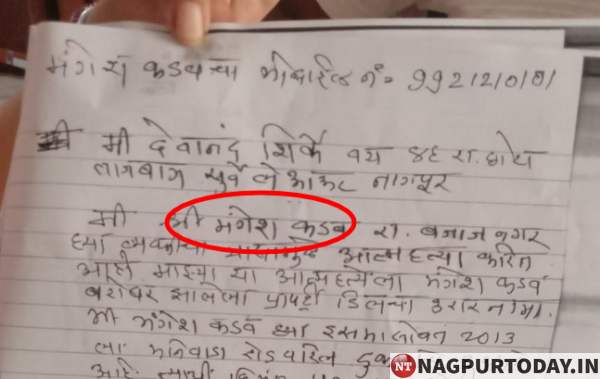 मंगेश कडवच्या मोबाईल नं = 9921210181
मी देवानंद शिर्के वय ४६ रा. छोटा
ताजबाग सुर्वे ले आऊट नागपूर
मी श्री मंगेश कडव रा. बजाज नगर
ह्या आत्महत्या करित
आहो माझ्या या आत्महत्येला मंगेश कडव
बरोबर झालेला प्रापर्टी डिलचा करारनामा.
मी मंगेश कडव ह्या इसमासोबत 2013
ला मानेवाडा रोडवरिल
आहे
NT NAGPURTODAY.IN